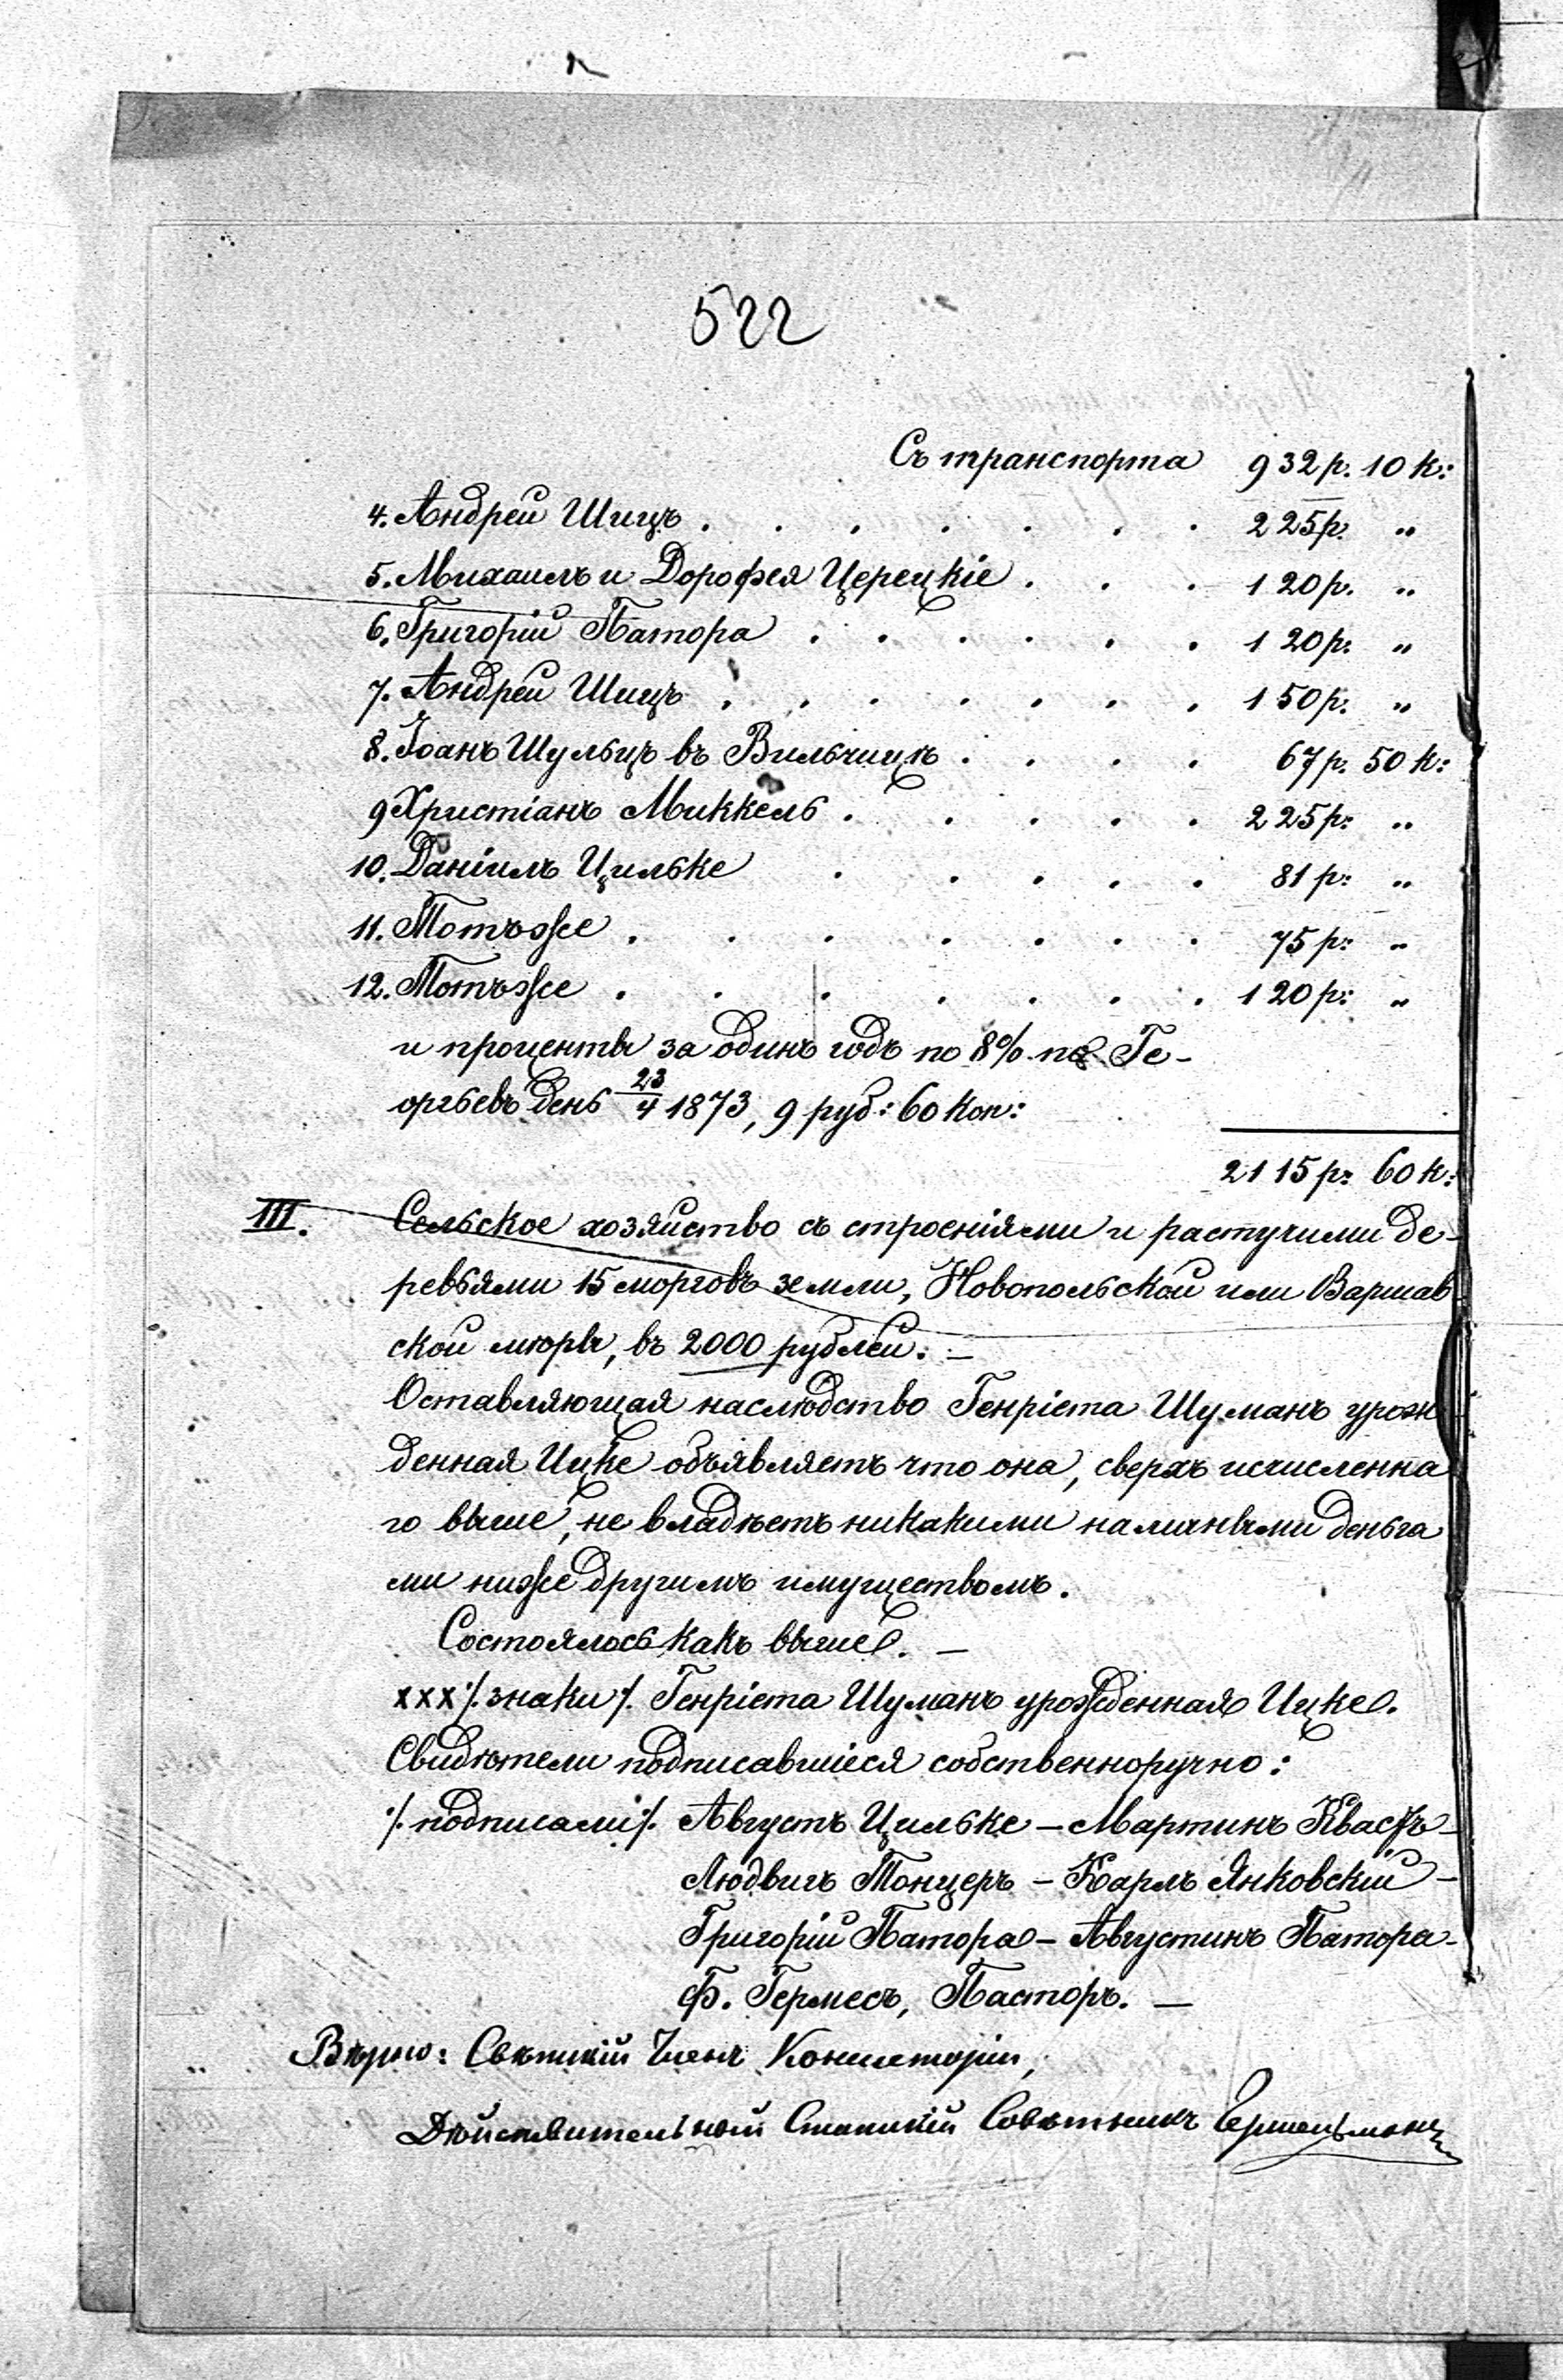 522
Съ транспорта 932 р. 10 к:
4. Андрей Шицъ . . . . . . . 225 р. „
5. Михаилъ и Дорофея Церецкіе . . . 120 р. „
6. Григорій Патора . . . . . . 120 р: „
7. Андрей Шицъ . . . . . . . 150 р: „
8. Іоанъ Шульцъ въ Вильчицѣ . . . . 67 р. 50 к:
9 Христіанъ Миккель . . . . . 225 р: „
10. Даніилъ Цильке . . . . . 81 р: „
11. Тотъже . . . . . . . 75 р: „
12. Тотъже . . . . . . . 120 р: „
и проценты за одинъ годъ по 8% по Ге-
оргьевъ день 23/4 1873, 9 руб: 60 коп:
2115 р: 60 к:
III. Сельское хозяйство съ строеніями и растучими де-
ревьями 15 морговъ земли, Новопольской или Варшав-
ской мѣры, въ 2000 рублей. —
Оставляющая наслѣдство Генріета Шуманъ урож-
денная Ицке объявляетъ что она, сверхъ исчисленна
го выше, не владѣетъ никакими наличными деньга
ми ниже другимъ имуществомъ.
Состоялось какъ выше. —
xxx ⁒ знаки ⁒ Генріета Шуманъ урожденная Ицке.
Свидѣтели подписавшіеся собственноручно:
⁒ подписали ⁒ Августъ Цильке — Мартинъ Квастъ —
Людвигъ Тонцеръ — Карлъ Янковскій —
Григорій Патора — Августинъ Патора —
Ф. Гермесъ, Пасторъ. —
Вѣрно: Свѣтскій Членъ Консисторіи,
Дѣйствительный Статскій Совѣтникъ